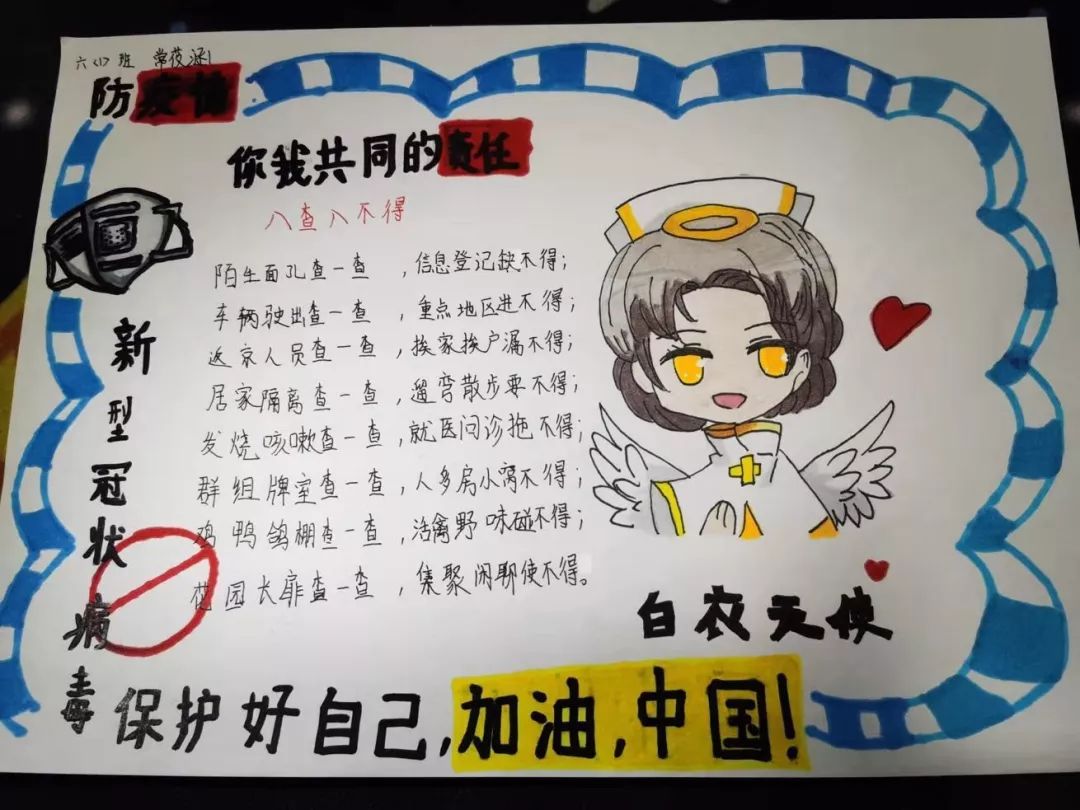 六(1)班 常茷涵
防疫情
你我共同的责任
八查八不得
陌生面孔查一查,信息登记缺不得;
车辆驶出查一查,重点地区进不得;
返京人员查一查,挨家挨户漏不得;
居家隔离查一查,遛弯散步要不得;
发烧咳嗽查一查,就医问诊拖不得;
群组牌室查一查,人多房小窝不得;
鸡鸭鸽棚查一查,活禽野味碰不得;
花园长廊查一查,集聚闲聊使不得。
新型冠状病毒
白衣天使
保护好自己,加油,中国!